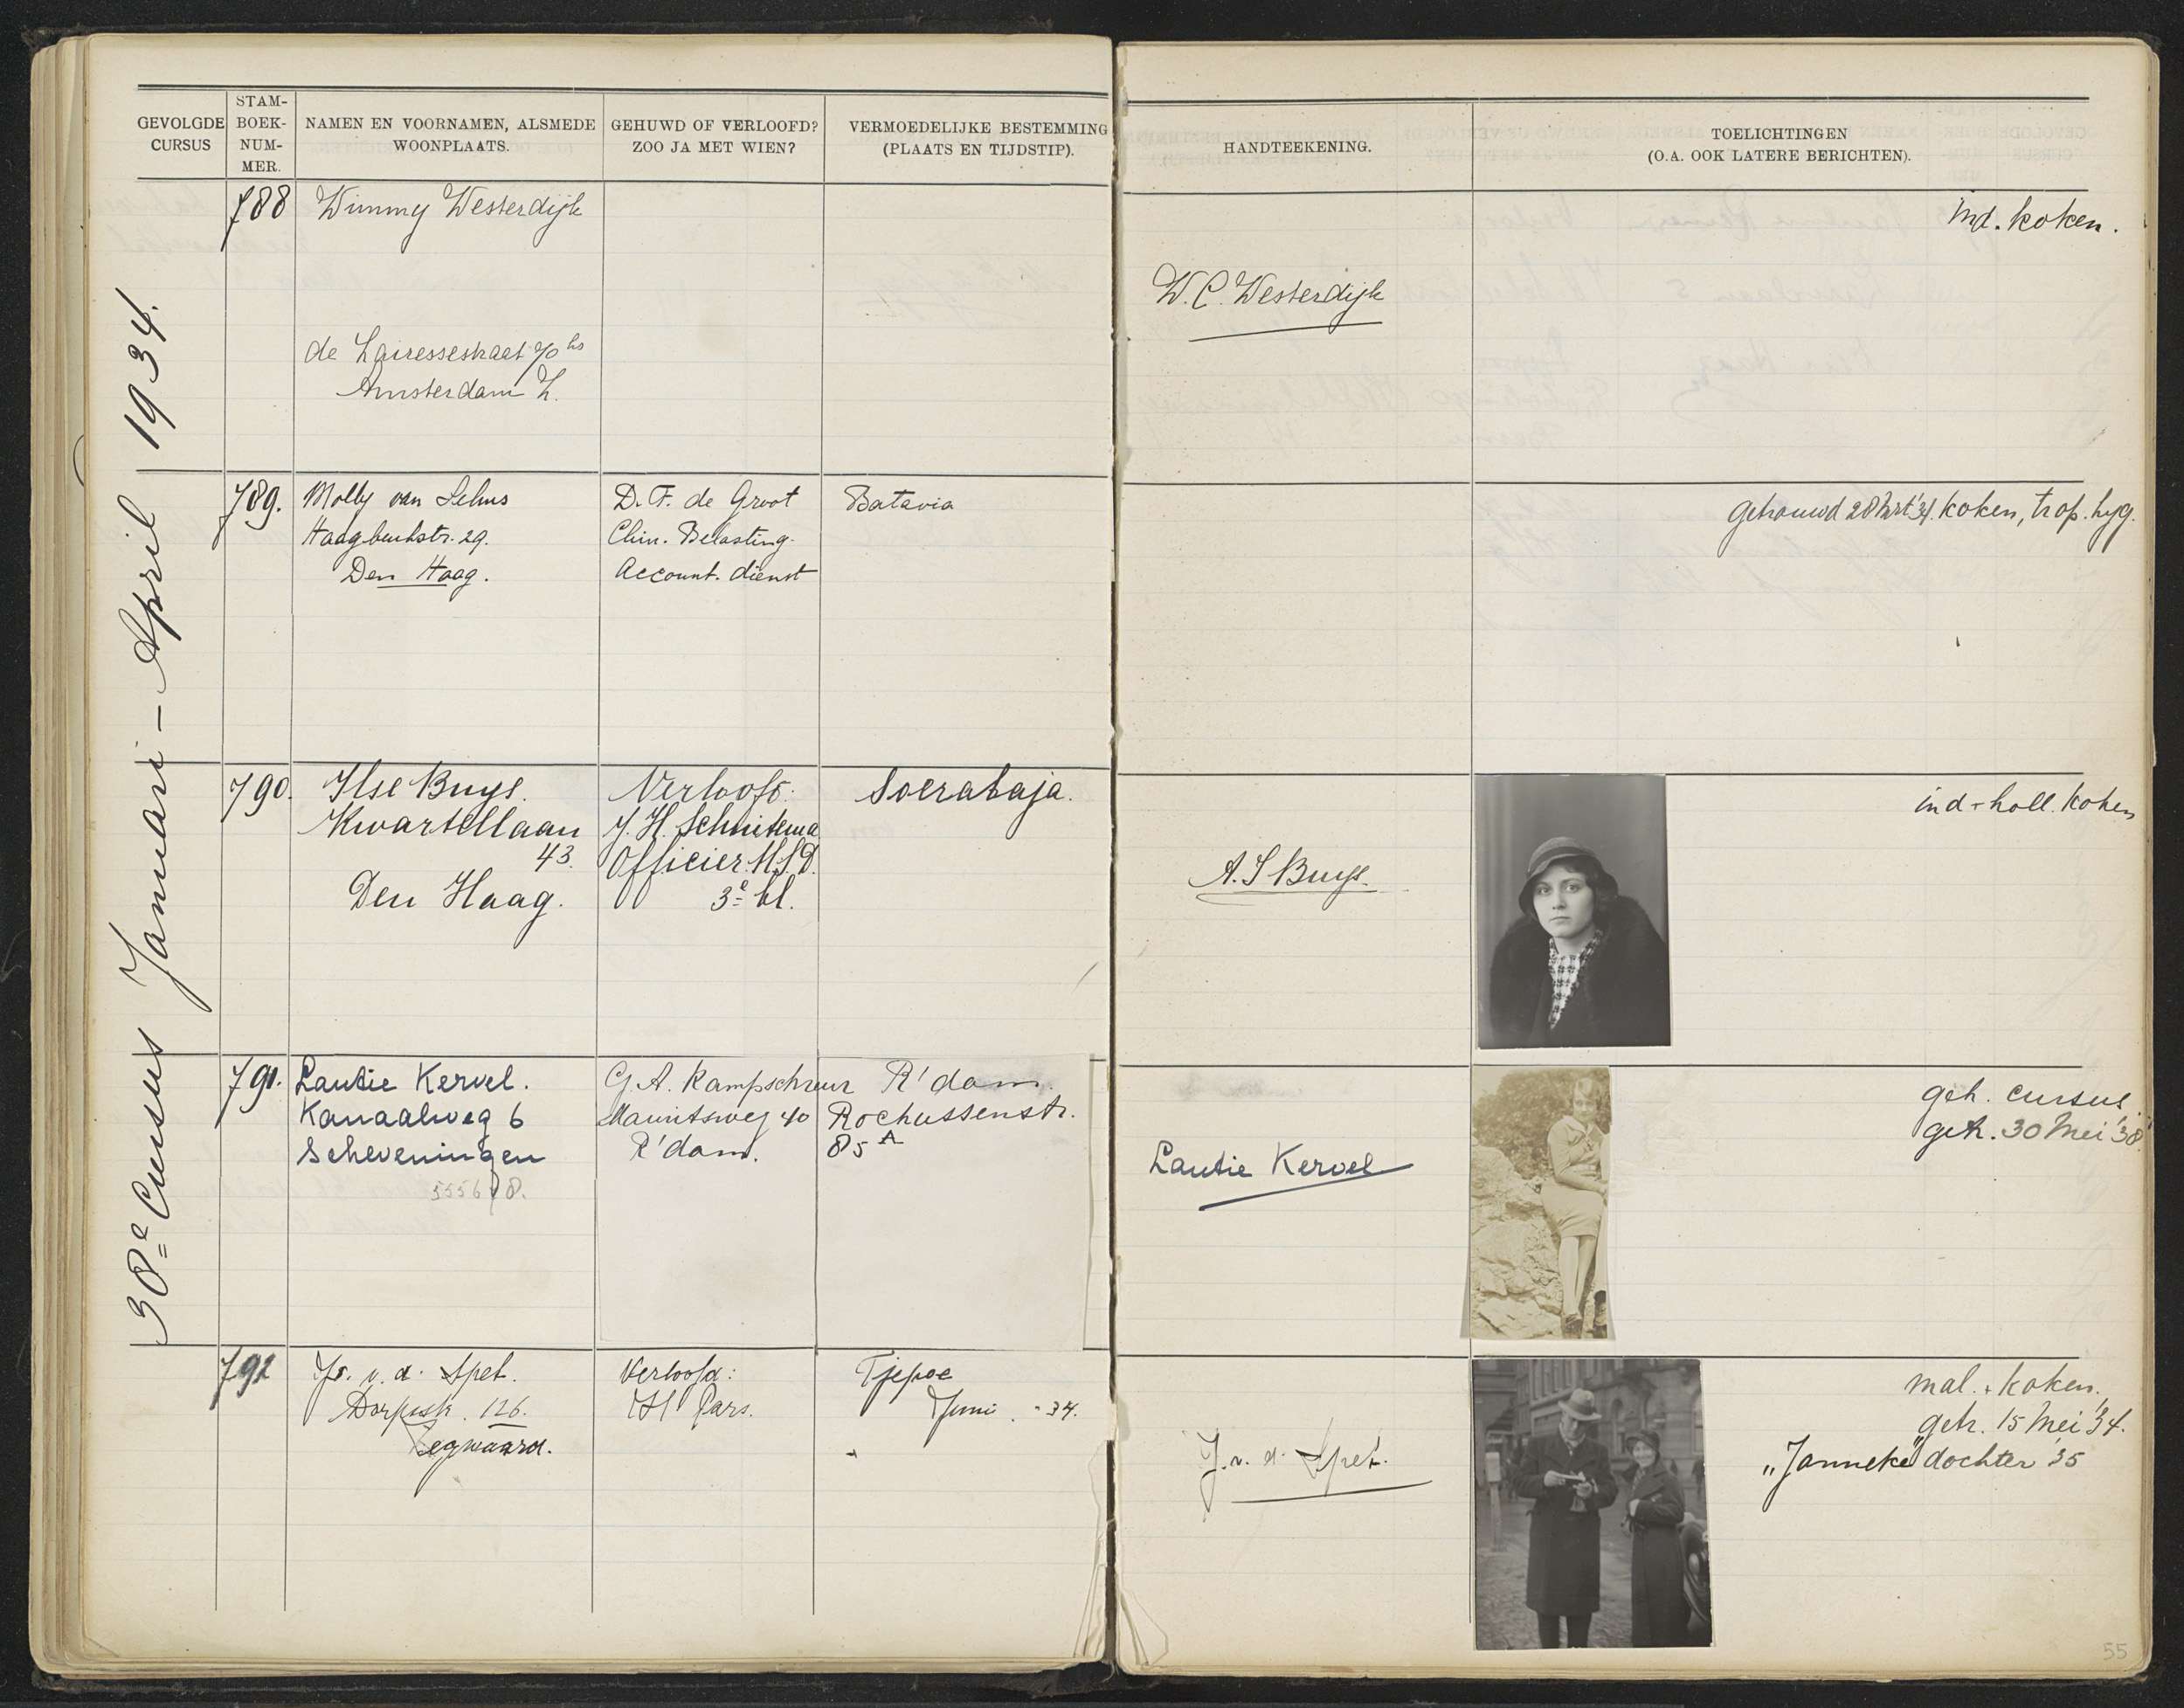 GEVOLGDE
CURSUS
STAM-
BOEK-
NUM-
MER.
NAMEN EN VOORNAMEN, ALSMEDE
WOONPLAATS.
GEHUWD OF VERLOOFD?
ZOO JA MET WIEN?
VERMOEDELIJKE BESTEMMING
(PLAATS EN TIJDSTIP).
HANDTEEKENING.
TOELICHTINGEN
(O.A. OOK LATERE BERICHTEN).
38e Cursus Januari - April 1934.
788
Wimmy Westerdijk
de Lairessestraat 70 hs
Amsterdam Z.
W.C. Westerdijk
ind. koken.
789.
Molly van
29.
Den Haag.
D.F. de Groot
Chin. Belasting-
Account. dienst
Batavia
getrouwd 28 '34. koken, trop. hyg.
790.
Ilse Buys.
Kwartellaan
43.
Den Haag.
Verloofd:
J.H. Schuitema
Officier M.S.D.
3e kl.
Soerabaja.
A.I Buys.
ind + holl. koken
791.
Lautie Kervel.
Kanaalweg 6
Scheveningen
5556 8.
G.A. Kampschreur
Mauritsweg 40
R'dam.
R'dam.
Rochussenstr.
85 A
Lautie Kervel
geh. cursus.
getr. 30 Mei '38.
792
v. d. Spek.
Dorpsstr. 126.
Zegwaard.
Verloofd:
Pars.
Tjepoe
Juni - 34.
J. v. d. Spek.
mal. + koken.
getr. 15 Mei '34.
"Janneke" dochter '35
55